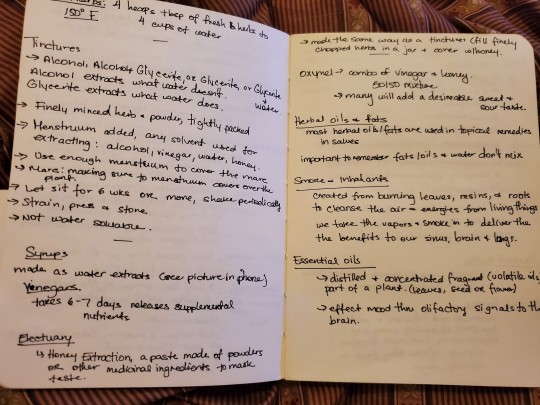 herbs: 4 heaps tbsp of fresh herbs to
150° F. 4 cups of water
Tinctures
→ Alcohol, Alcohol + Glycerite, or Glycerite, or Glycerite + water
Alcohol extracts what water doesn't.
Glycerite extracts what water does.
→ Finely minced herb + powder, tightly packed
→ Menstruum added, any solvent used for
extracting: alcohol, vinegar, water, honey.
→ Use enough menstruum to cover the marc
→ Marc: making sure to menstruum covers over the
plant.
→ Let sit for 6 wks or more, shake periodically
→ Strain, press & store
→ Not water soluable.
Syrups
made as water extracts (see picture in phone)
Venegars
takes 6-7 days releases supplemental
nutrients
Electuary
↳ Honey Extraction, a paste made of powders
or other medicinal ingredients to mask
taste.
→ made the same way as a tincture (fill finely
chopped herbs in a jar + cover w/honey.
Oxymel → combo of vinegar + honey.
50/50 mixture
→ many will add a desireable sweet +
sour taste.
Herbal oils & fats
most herbal oils/fats are used in topical remedies
in salves
important to remember fats/oils & water don't mix
Smoke - Inhalants
created from burning leaves, resins, & roots
to cleanse the air + energies from living things
we take the vapors & smoke in to deliver the
the benefits to our sinus, brain & lungs.
Essential oils
→ distilled + concentrated fragrant (volatile oils)
part of a plant. (leaves, seed or flower)
→ effect mood thru olifactory signals to the
brain.